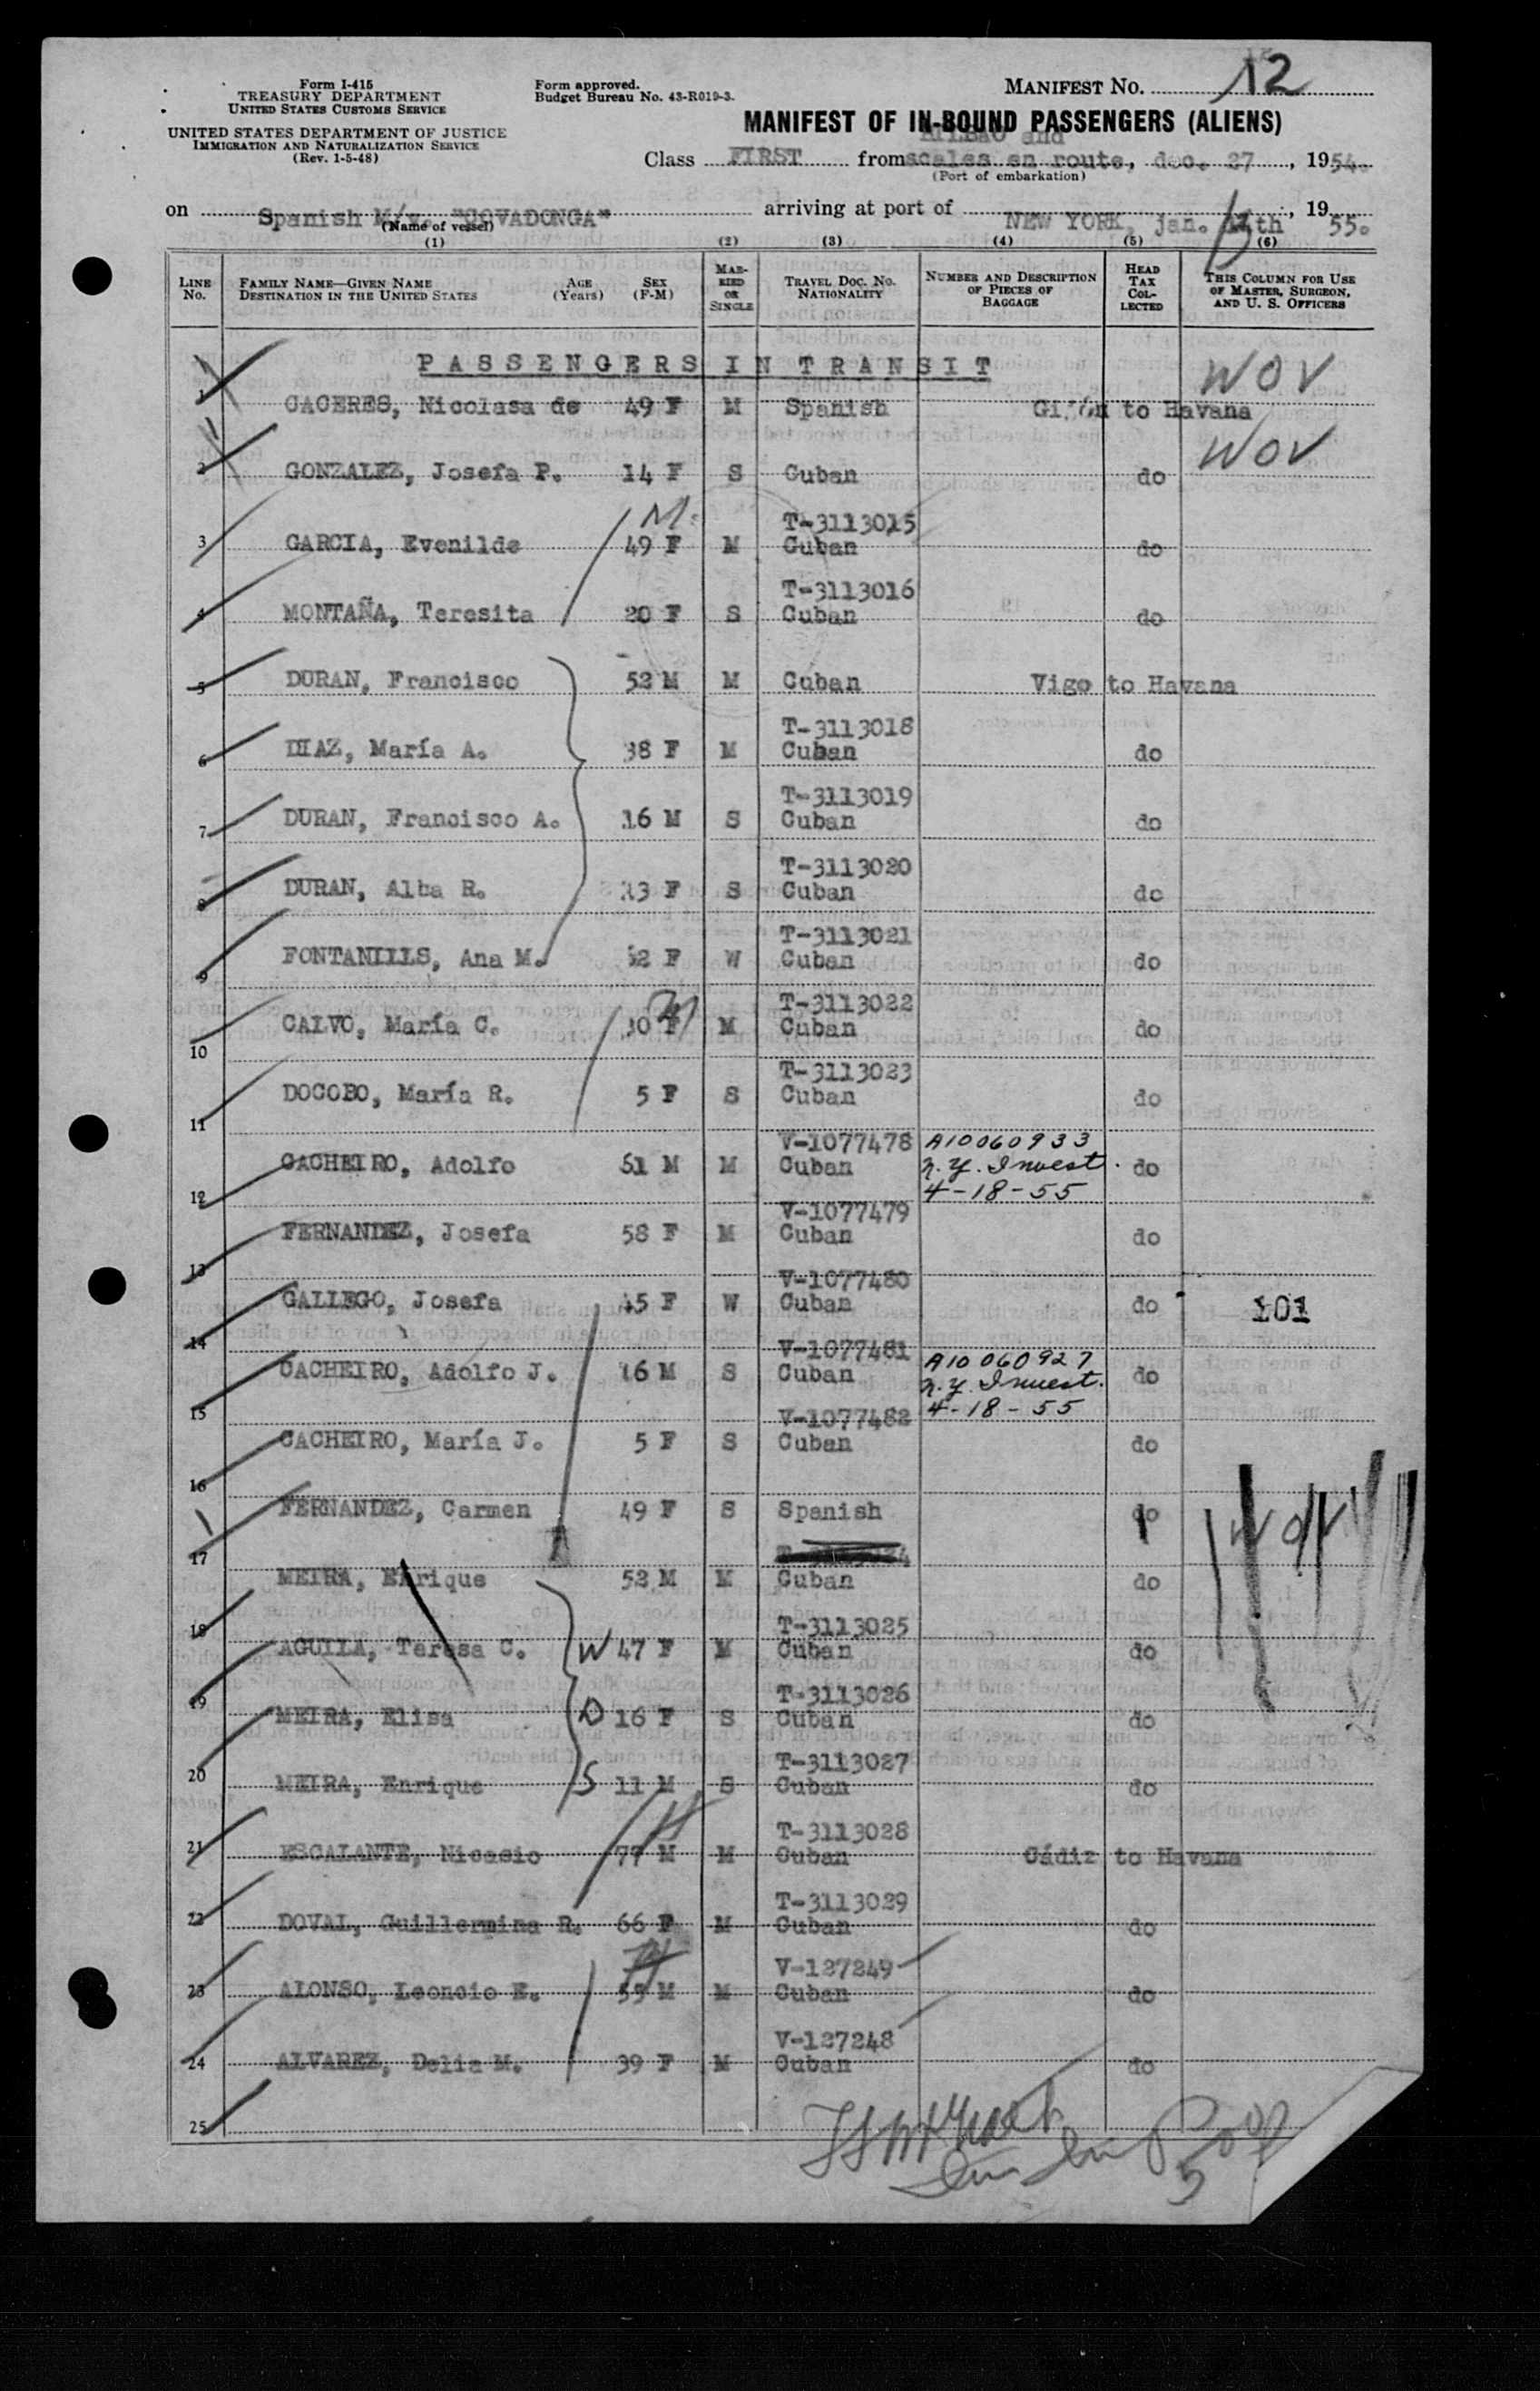 Form I-415
TREASURY DEPARTMENT
UNITED STATES CUSTOMS SERVICE
UNITED STATES DEPARTMENT OF JUSTICE
IMMIGRATION AND NATURALIZATION SERVICE
(Rev. 1-5-48)
Form approved.
Budget Bureau No. 43-R019-3.
MANIFEST NO. 12
MANIFEST OF IN-BOUND PASSENGERS (ALIENS)
BILBAO and
Class FIRST from scales en route, dec. 27, 1954.
(Port of embarkation)
on Spanish M/v. "COVADONGA" arriving at port of NEW YORK, jan. th, 1955.
(Name of vessel)
(1) (2) (3) (4) (5) (6)
LINE No. FAMILY NAME—GIVEN NAME DESTINATION IN THE UNITED STATES AGE (Years) SEX (F-M) MARRIED OR SINGLE TRAVEL DOC. NO. NATIONALITY NUMBER AND DESCRIPTION OF PIECES OF BAGGAGE HEAD TAX COLLECTED THIS COLUMN FOR USE OF MASTER, SURGEON, AND U. S. OFFICERS
PASSENGERS IN TRANSIT
WOV
1 CACERES, Nicolasa de 49 F M Spanish Gijón to Havana
WOV
2 GONZALEZ, Josefa P. 14 F S Cuban do
M. T-3113015
3 GARCIA, Evenilde 49 F M Cuban do
T-3113016
4 MONTAÑA, Teresita 20 F S Cuban do
5 DURAN, Francisco 52 M M Cuban Vigo to Havana
T-3113018
6 DIAZ, María A. 38 F M Cuban do
T-3113019
7 DURAN, Francisco A. 16 M S Cuban do
T-3113020
8 DURAN, Alba R. 13 F S Cuban do
T-3113021
9 FONTANILLS, Ana M. 2 F W Cuban do
T-3113022
10 CALVO, María C. 30 F M Cuban do
T-3113023
11 DOCOBO, María R. 5 F S Cuban do
V-1077478 A10060933
12 CACHEIRO, Adolfo 61 M M Cuban N.Y. Invest. do
4-18-55
V-1077479
13 FERNANDEZ, Josefa 58 F M Cuban do
V-1077480
14 GALLEGO, Josefa 45 F W Cuban do 101
V-1077481 A10 060 927
15 CACHEIRO, Adolfo J. 16 M S Cuban N.Y. Invest. do
V-1077482 4-18-55
16 CACHEIRO, María J. 5 F S Cuban do
17 FERNANDEZ, Carmen 49 F S Spanish do WOV
18 MEIRA, Enrique 52 M M Cuban do
T-3113025
19 AGUILA, Teresa C. W 47 F M Cuban do
T-3113026
20 MEIRA, Elisa D 16 F S Cuban do
T-3113027
21 MEIRA, Enrique S 11 M S Cuban do
T-3113028
22 ESCALANTE, Nicasio 77 M M Cuban Cádiz to Havana
T-3113029
23 DOVAL, Guillermina R. 66 F M Cuban do
V-127249
24 ALONSO, Leoncio E. 55 M M Cuban do
V-127248
25 ALVAREZ, Delia M. 39 F M Cuban do